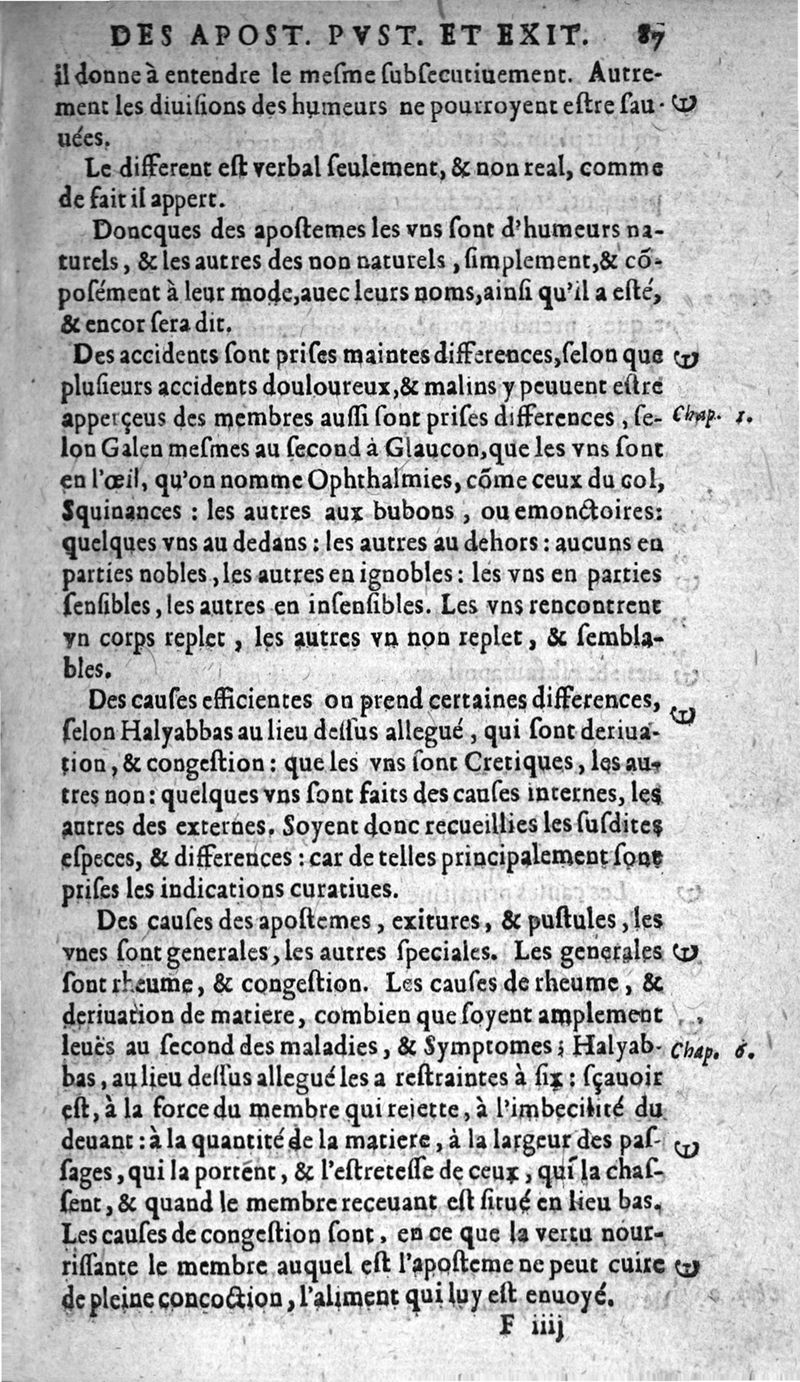 DES APOST. PVST. ET EXIT. 87
il donne à entendre le meſme ſubſecutiuement. Autre-
ment les diuiſions des humeurs ne pourroyent eſtre ſau-
uées.
Le different eſt verbal ſeulement, & non real, comme
de fait il appert.
Doncques des apoſtemes les vns ſont d'humeurs na-
turels, & les autres des non naturels, ſimplement, & cõ-
poſément à leur mode, auec leurs noms, ainſi qu'il a eſté,
& encor ſera dit.
Des accidents ſont priſes maintes differences, ſelon que
pluſieurs accidents douloureux, & malins y peuuent eſtre
apperçeus des membres auſſi ſont priſes differences, ſe- Chap. 1.
lon Galen meſmes au ſecond à Glaucon, que les vns ſont
en l'œil, qu'on nomme Ophthalmies, cõme ceux du col,
Squinances : les autres aux bubons, ou emonctoires:
quelques vns au dedans : les autres au dehors : aucuns en
parties nobles, les autres en ignobles : les vns en parties
ſenſibles, les autres en inſenſibles. Les vns rencontrent
vn corps replet, les autres vn non replet, & ſembla-
bles.
Des cauſes efficientes on prend certaines differences,
ſelon Halyabbas au lieu deſſus allegué, qui ſont deriua-
tion, & congeſtion : que les vns ſont Cretiques, les au-
tres non : quelques vns ſont faits des cauſes internes, les
autres des externes. Soyent donc recueillies les ſuſdites
eſpeces, & differences : car de telles principalement ſont
priſes les indications curatiues.
Des cauſes des apoſtemes, exitures, & puſtules, les
vnes ſont generales, les autres ſpeciales. Les generales
ſont rheume, & congeſtion. Les cauſes de rheume, &
deriuation de matiere, combien que ſoyent amplement
leuës au ſecond des maladies, & Symptomes ; Halyab- Chap. 6.
bas, au lieu deſſus allegué les a reſtraintes à ſix : ſçauoir
eſt, à la force du membre qui reiette, à l'imbecilité du
deuant : à la quantité de la matiere, à la largeur des paſ-
ſages, qui la portent, & l'eſtreteſſe de ceux, qui la chaſ-
ſent, & quand le membre receuant eſt ſitué en lieu bas.
Les cauſes de congeſtion ſont, en ce que la vertu nour-
riſſante le membre auquel eſt l'apoſteme ne peut cuire
de pleine concoction, l'aliment qui luy eſt enuoyé.
F iiij